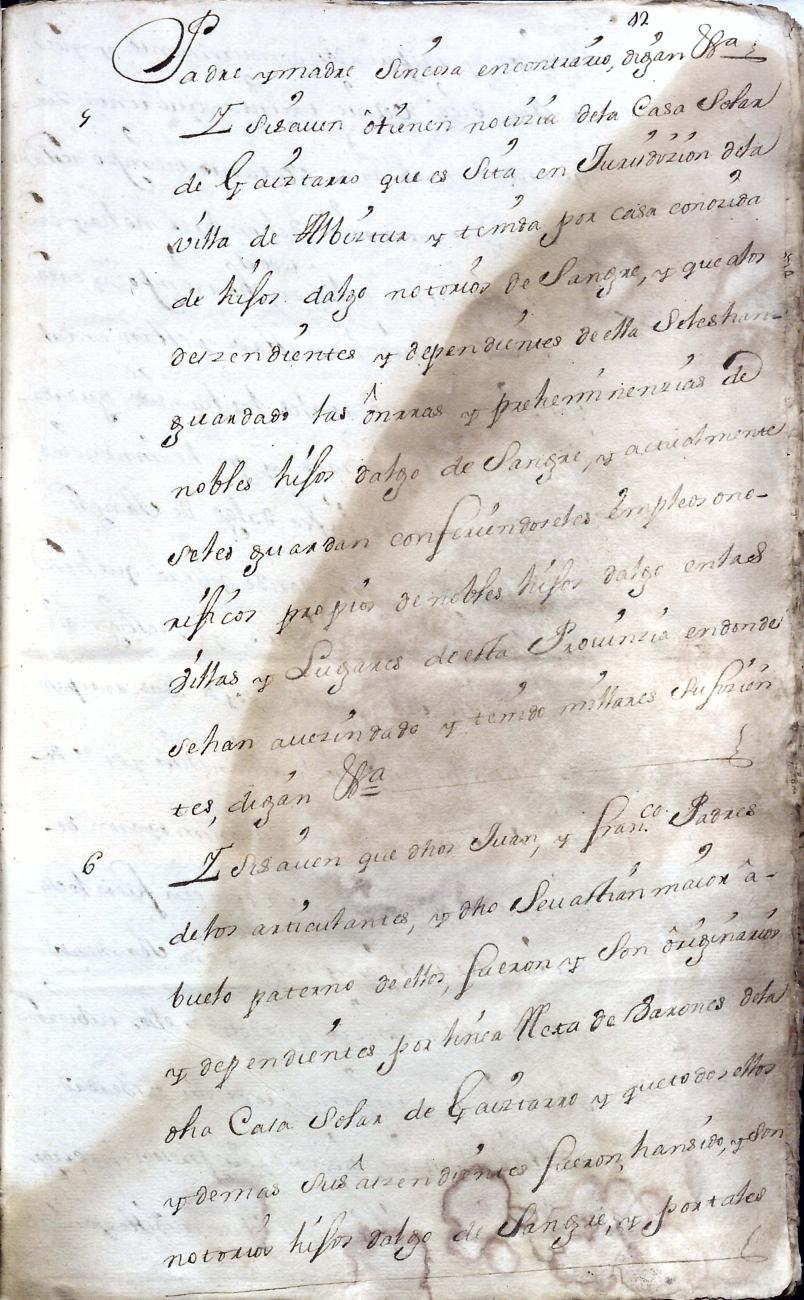 12
Padre y madre sincosa encontrario, digan &a
5
I sisaven ô tienen notizia dela Casa Solar
de Gaiztarro que es sita en Juridizion dela
villa de Albiztur y tenida por casa conozida
de hijos dalgo notorios de Sangre, y que alos
deszendientes y dependientes de ella seles han
guardado las ônrras y preheminenzias de
nobles hijos dalgo de Sangre, y actualmente
seles guardan confiriendoseles empleos ono-
rificos propios de nobles hijos dalgo en las
villas y Lugares de esta Provinzia en donde
sehan avezindado y tenido millares sufizien
tes, digan &a
6
I sisaven que dhos Juan, y Franco. Padres
delos articulantes, y dho Sevastian maior â-
buelo paterno de ellos, fueron y son ôriginarios
y dependientes por linea Recta de Barones dela
dha Casa Solar de Gaiztarro y que todos ellos
y demas sus âszendientes fueron, hansido, y son
notorios hijos dalgo de Sangre, y por tales